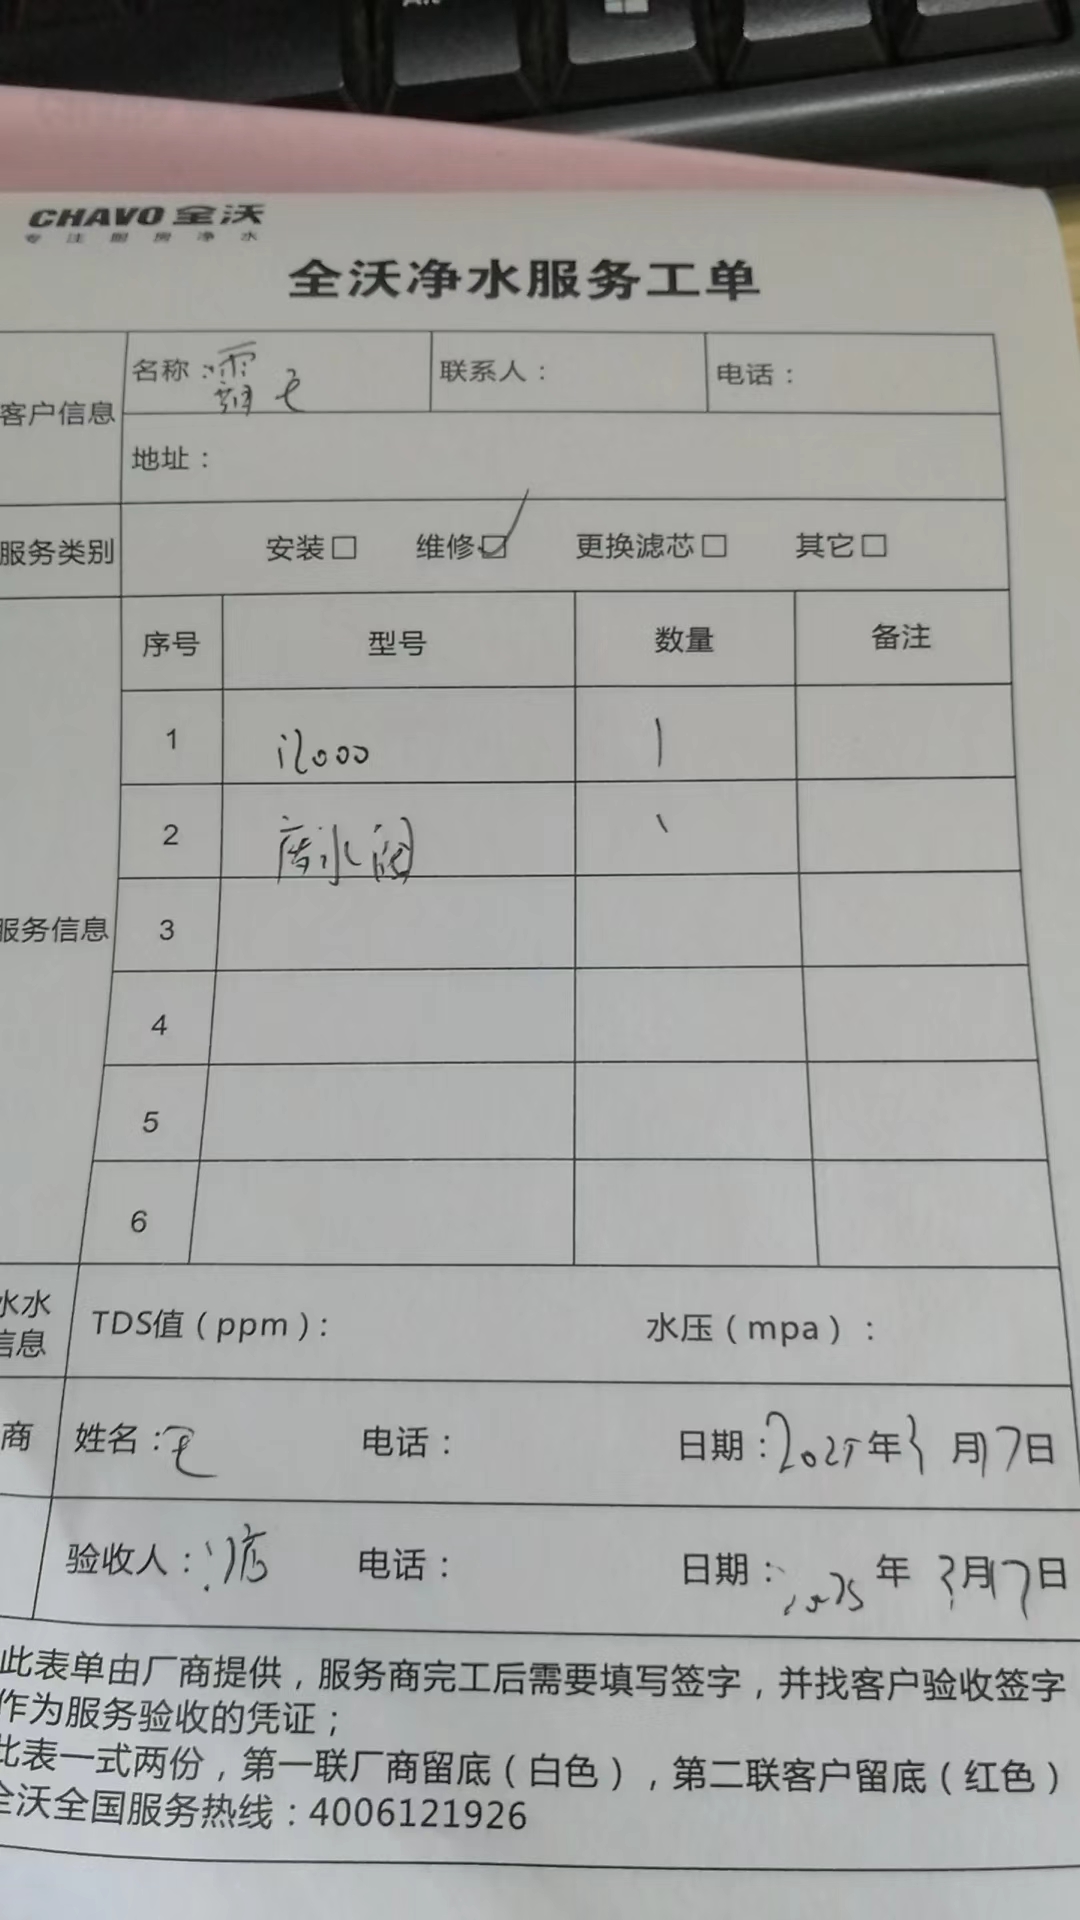 CHAVO 全沃
专注厨房净水
全沃净水服务工单
客户信息 名称：霸王 联系人： 电话：
地址：
服务类别 安装□ 维修☑ 更换滤芯□ 其它□
序号 型号 数量 备注
1 1
2 废水阀 1
服务信息 3
4
5
6
水水
信息
TDS值（ppm）： 水压（mpa）：
商 姓名： 电话： 日期：2025年3月17日
验收人： 电话： 日期：2025年3月17日
此表单由厂商提供，服务商完工后需要填写签字，并找客户验收签字
作为服务验收的凭证；
此表一式两份，第一联厂商留底（白色），第二联客户留底（红色）
全沃全国服务热线：4006121926